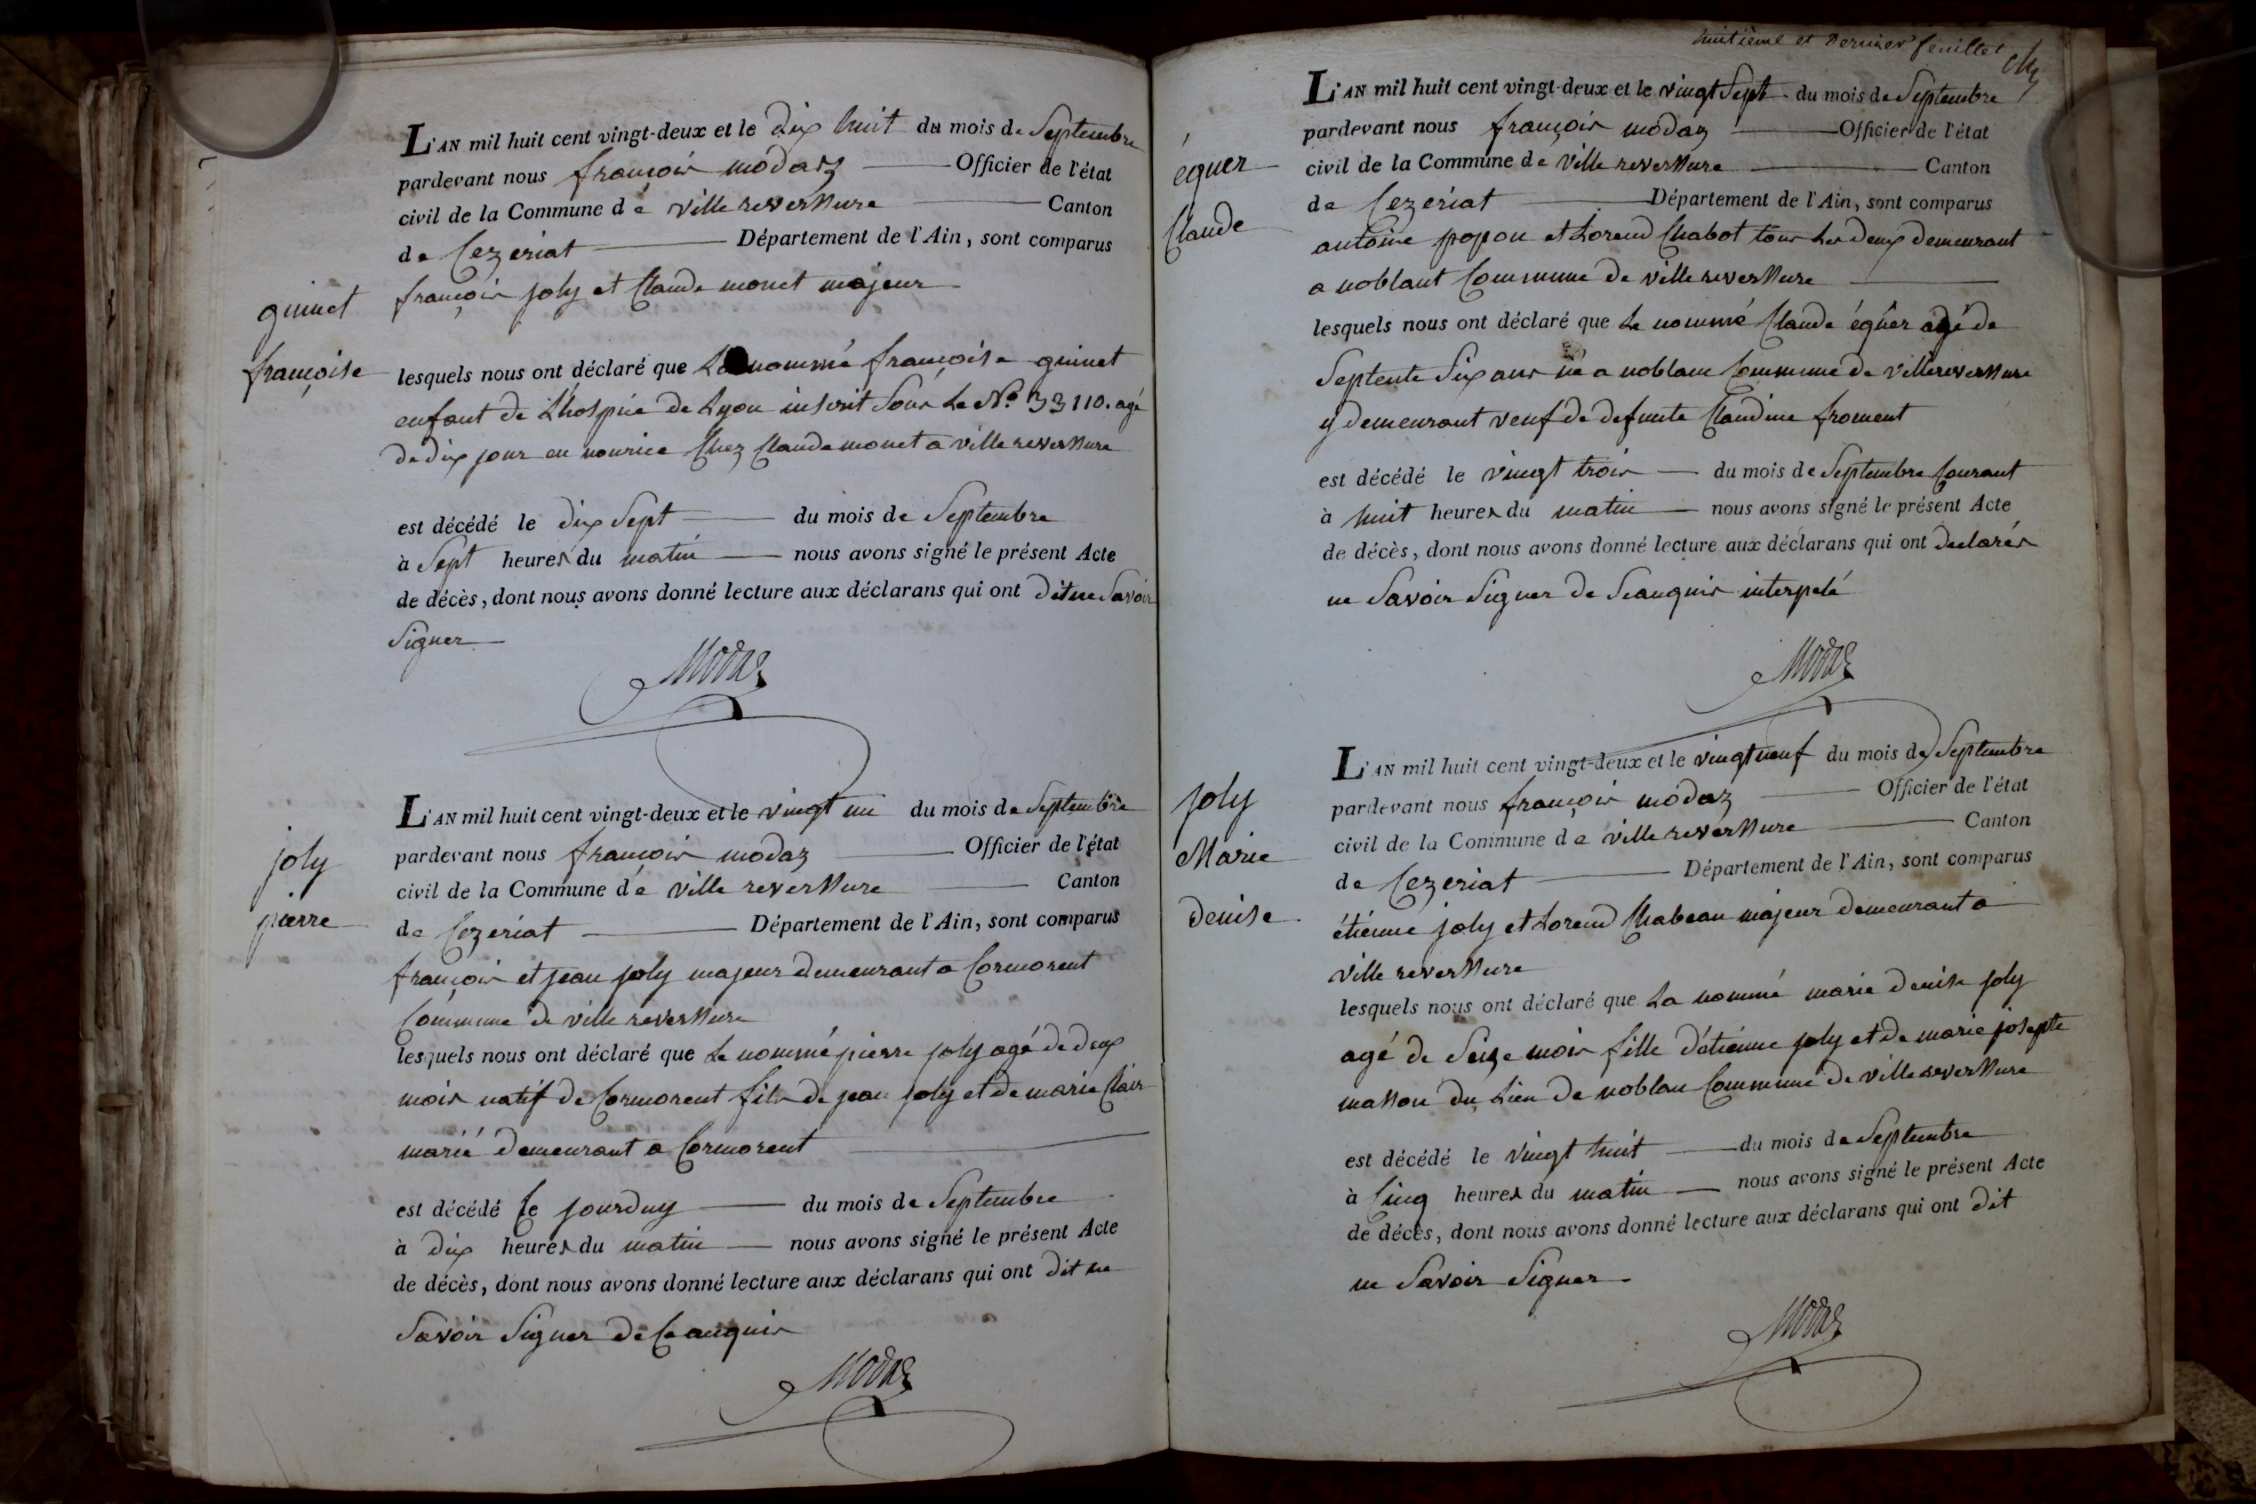 L'AN mil huit cent vingt-deux et le dix huit du mois de Septembre
pardevant nous françois modaz Officier de l'état
civil de la Commune de ville reverssure Canton
de Cezeriat Département de l'Ain, sont comparus
françois joly et Claude monet majeur
guinet
françoise
lesquels nous ont déclaré que La nommé françoise guinet
enfant de L'hospice de Lyon inscrit Sous Le No 33110. agé
de dix jour en nourice Chez Claude monet a ville reverssure
est décédé le dix Sept du mois de Septembre
à Sept heures du matin nous avons signé le présent Acte
de décès, dont nous avons donné lecture aux déclarans qui ont dit ne Savoir
Signer
Modaz
L'AN mil huit cent vingt-deux et le vingt un du mois de Septembre
joly
pierre
pardevant nous françois modaz Officier de l'état
civil de la Commune de ville reverssure Canton
de Cezériat Département de l'Ain, sont comparus
françois et jean joly majeur demeurant a Cormorent
Commune de ville reverssure
lesquels nous ont déclaré que Le nommé pierre joly agé de deux
mois natif de Cormorent fils de jean joly et de marie Clair
marié demeurant a Cormorent
est décédé le jourduy du mois de Septembre
à dix heures du matin nous avons signé le présent Acte
de décès, dont nous avons donné lecture aux déclarans qui ont dit ne
Savoir Signer de Ceanquis
Modaz
huitième et Dernier feuillet
L'AN mil huit cent vingt-deux et le vingt Sept du mois de Septembre
éguer
Claude
pardevant nous françois modaz Officier de l'état
civil de la Commune de Ville reverssure Canton
de Cezeriat Département de l'Ain, sont comparus
antoine popon et Lorend Chabot tous Les deux demeurant
a noblant Commune de ville reverssure
lesquels nous ont déclaré que Le nommé Claude éguer agé de
Septente Six ans né a noblane Commune de villereverssure
y demeurant veuf de defunte Claudine froment
est décédé le vingt trois du mois de Septembre Courant
à huit heures du matin nous avons signé le présent Acte
de décès, dont nous avons donné lecture aux déclarans qui ont declarés
ne Savoir Signer de Seanquis interpelé
Modaz
L'AN mil huit cent vingt-deux et le vingt neuf du mois de Septembre
joly
Marie
denise
pardevant nous françois modaz Officier de l'état
civil de la Commune de ville reverssure Canton
de Cezeriat Département de l'Ain, sont comparus
étienne joly et Lorend Chabeau majeur demeurant a
ville reverssure
lesquels nous ont déclaré que La nommé marie denise joly
agé de Seize mois fille d'étienne joly et de marie josepte
masson du Lieu de noblan Commune de ville reverssure
est décédé le vingt huit du mois de Septembre
à Cinq heures du matin nous avons signé le présent Acte
de décès, dont nous avons donné lecture aux déclarans qui ont dit
ne Savoir Signer
Modaz